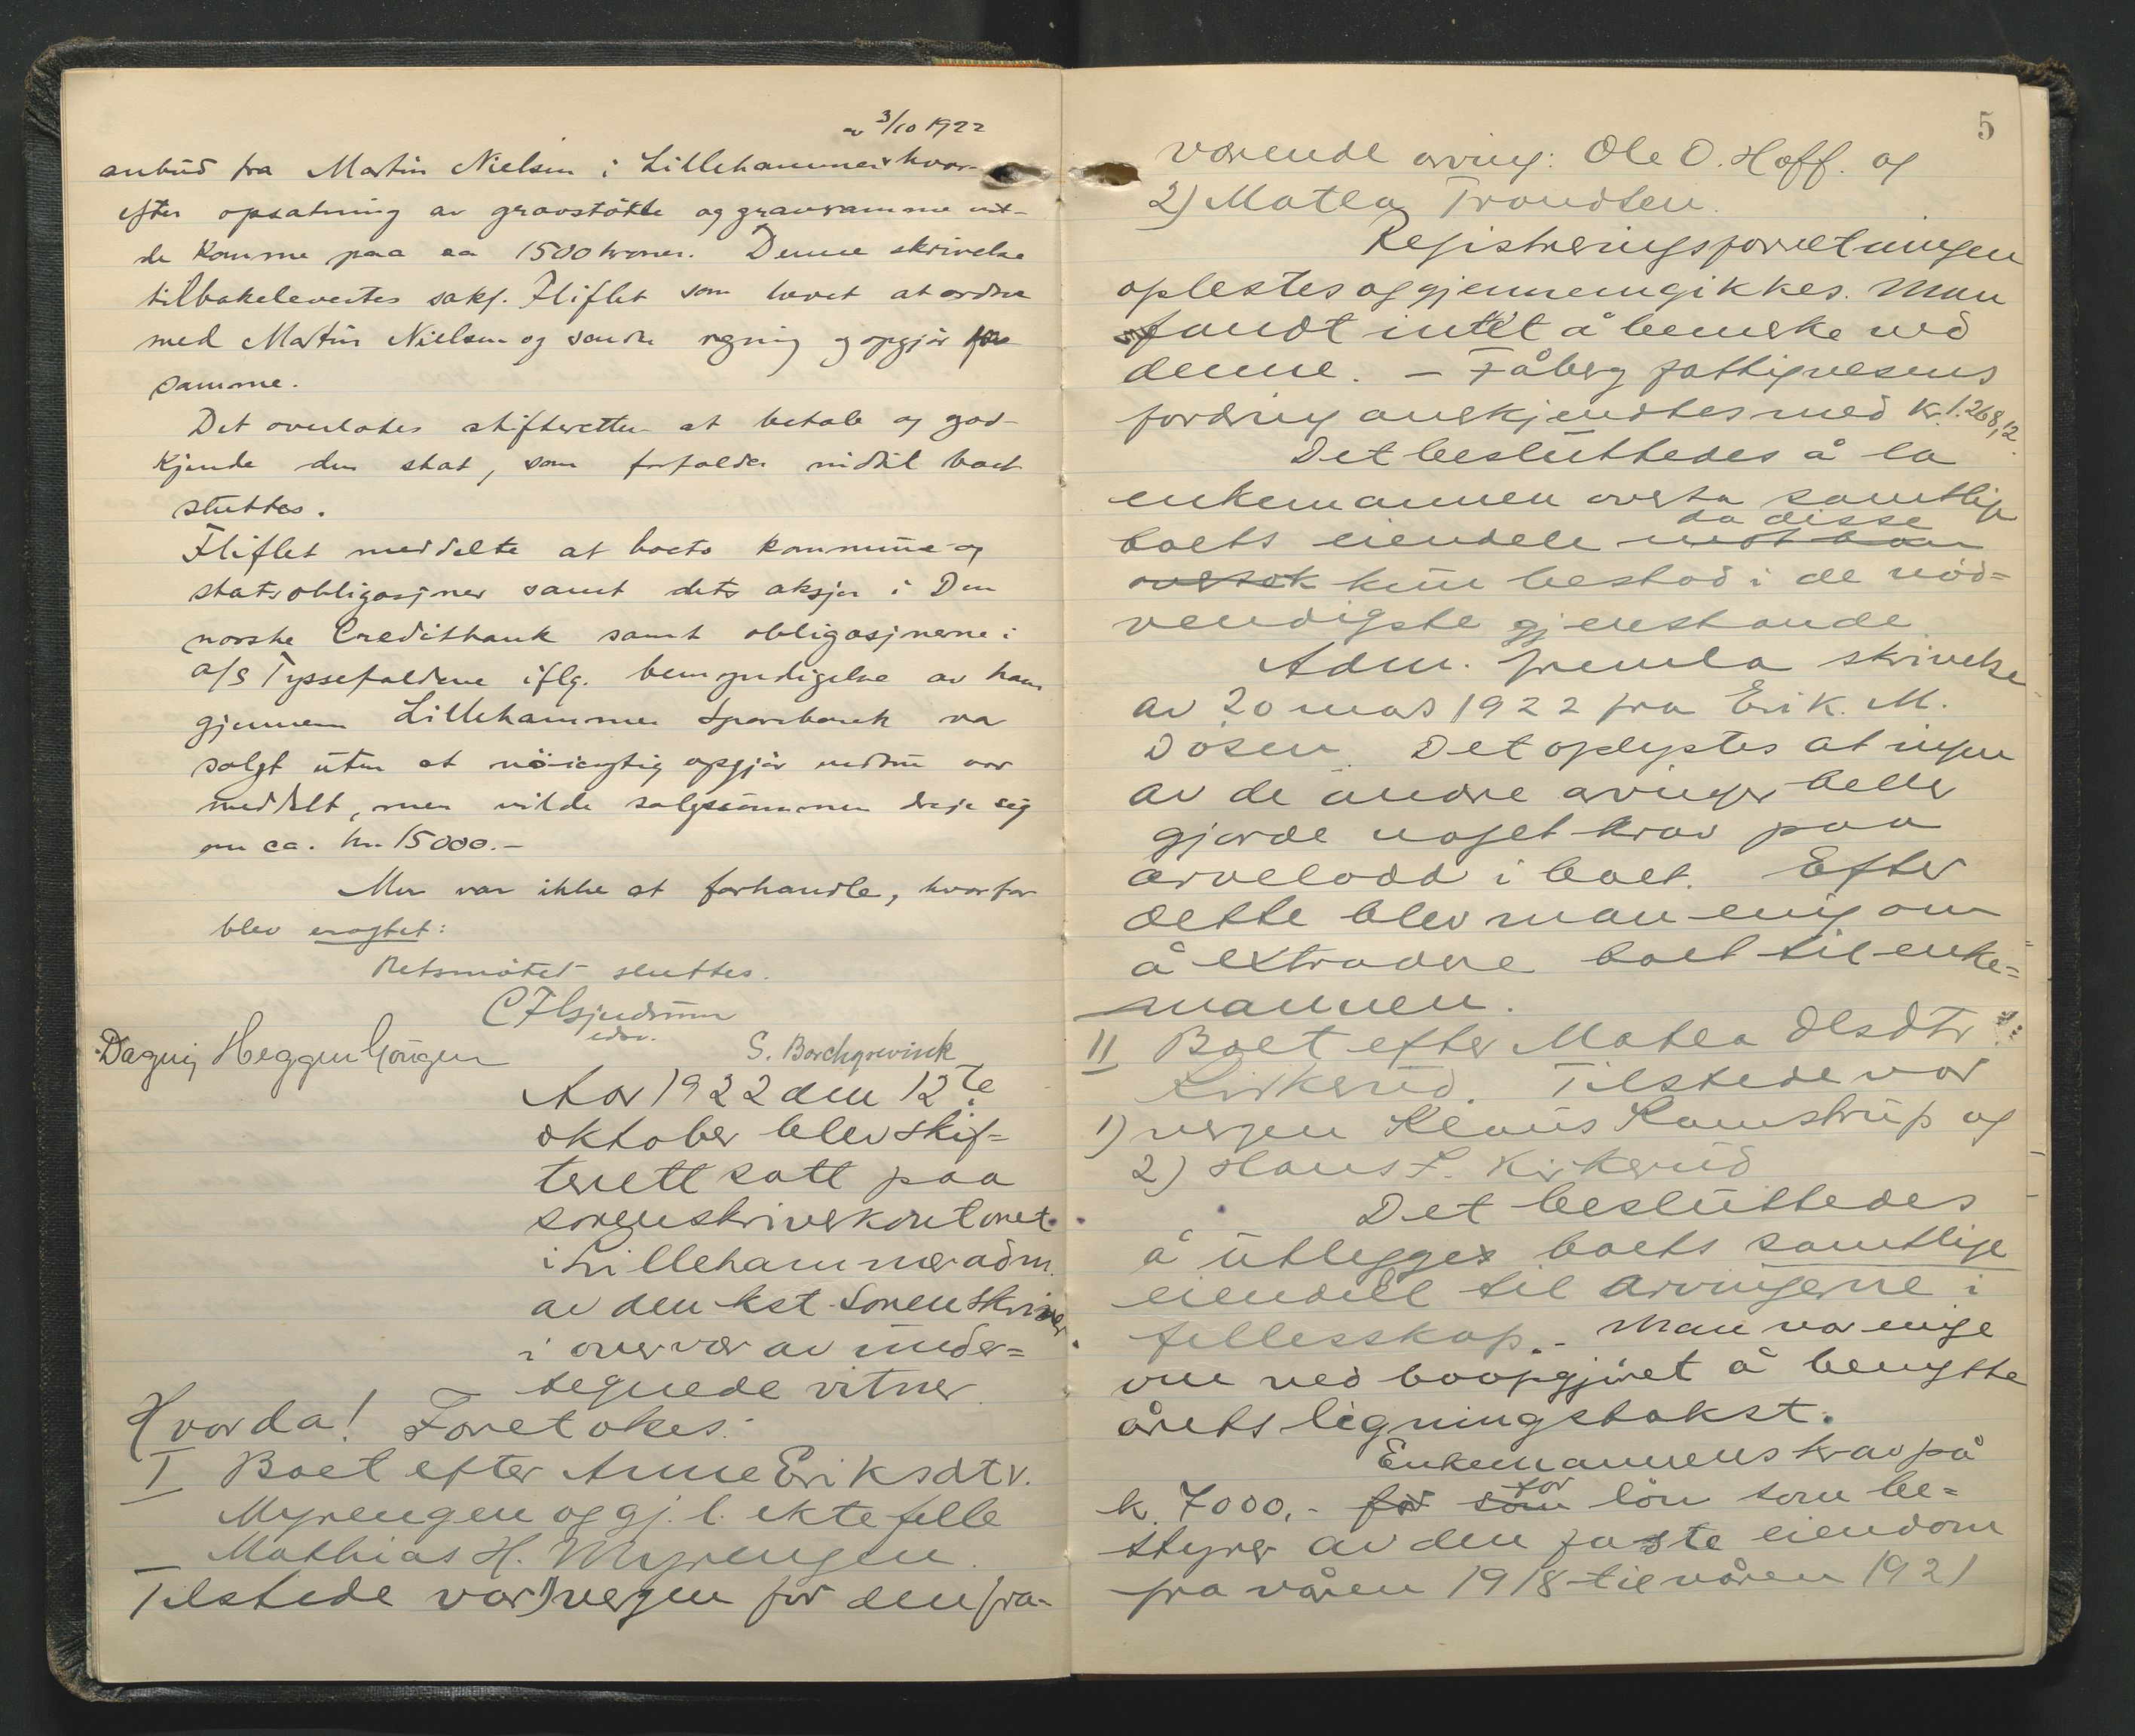 av 3/10 1922
anbud fra Martin Nielsen i Lillehammer hvor-
efter opsætning av gravstötte og gravramme vil-
de komme paa ca 1500 kroner. Denne skrivelse
tilbakelevertes sakf. Fliflet som lovet at ordne
med Martin Nielsen og sende regning og opgjör for
samme.
Det overlates skifteretten at betale og god-
kjende den skat, som forfalder indtil boet
sluttes.
Fliflet meddelte at boets kommune- og
statsobligasjoner samt dets aksjer i Den
norske Creditbank samt obligasjonerne i
A/S Tyssefaldene iflg. bemyndigelse av ham
gjennem Lillehammer Sparebank var
solgt uten at nöiagtig opgjör endnu var
meddelt, men vilde salgssummen dreje sig
om ca. kr. 15000.-
Mer var ikke at forhandle, hvorfor
blev eragtet:
Retsmötet sluttes.
edsv.
Dagny Heggen
S. Borchgrevink
Aar 1922 den 12te
oktober blev skif-
terett satt paa
sorenskriverkontoret
i Lillehammer adm.
av den kst. Sorenskriver
i overvær av under-
tegnede vitner
Hvorda! Foretokes:
I Boet efter Anne Eriksdtr.
Myrengen og gj. l. ektefelle
Mathias H. Myrengen.
Tilstede var 1) vergen for den fra-
5
værende arving: Ole O. Hoff. og
2) Matea Trondsen.
Registreringsforretningen
oplestes og gjennemgikkes. Man
fandt intet å bemerke ved
denne. - Fåberg fattigvesens
fordring anerkjendtes med kr. 1.268,12.
Det besluttedes å la
enkemannen overta samtlige
da disse
boets eiendele mot han
oversok kun bestod i de nöd-
vendigste gjenstande
Adm. fremla skrivelse
av 20 mars 1922 fra Erik M.
Dosen. Det oplystes at ingen
av de andre arvinger heller
gjorde noget krav paa
arvelodd i boet. Efter
dette blev man enig om
å extradere boet til enke-
mannen.
II Boet efter Matea Olsdtr
Kirkerud. Tilstede var
1) vergen Klaus Kamstrup og
2) Hans L. Kirkerud
Det besluttedes
å utlegges boets samtlige
eiendele til arvingerne i
fellesskap. - Man var enige
om ved boopgjöret å benytte
årets ligningstakst.
Enkemannens krav på
for
k. 7000,- for som lön som be-
styrer av den faste eiendom
fra våren 1918 til våren 1921